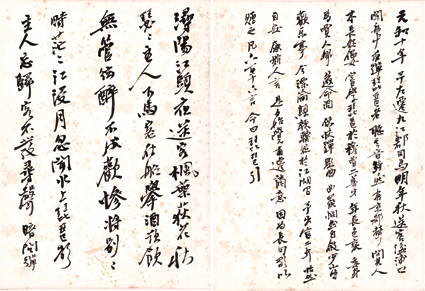 元和十年予左遷九江郡司馬明年秋送客湓浦口
聞舟中夜彈琵琶者聽其音錚然有京都聲問其人
本長安倡女嘗學琵琶於穆曹二善才年長色衰委身
為賈人婦遂命酒使快彈數曲曲罷憫然自敘少小時
歡樂事今漂淪憔悴轉徙於江湖間予出官二年恬然
自安感斯人言是夕始覺有遷謫意因為長句歌以
贈之凡六百六言命曰琵琶引
潯陽江頭夜送客楓葉荻花秋
瑟〻主人下馬客在船舉酒欲飲
無管絃醉不成歡慘將別〻
時茫〻江浸月忽聞水上琵琶聲
主人忘歸客不發尋聲暗問彈